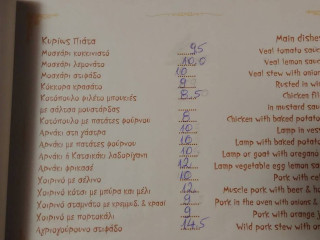 Κυρίως Πιάτα
Μοσχάρι κοκκινιστό 9,5
Μοσχάρι λεμονάτο 10,0
Μοσχάρι στιφάδο 10
Κόκκορα κρασάτο 9
Κοτόπουλο φιλέτο μπουκιές 8,5
με σάλτσα μουστάρδας
Κοτόπουλο με πατάτες φούρνου 8
Αρνάκι στη γάστρα 10
Αρνάκι με πατάτες φούρνου 10
Αρνάκι ή Κατσικάκι λαδορίγανη 10
Αρνάκι φρικασέ 12
Χοιρινό με σέλινο 10
Χοιρινό κότσι με μπύρα και μέλι 12
Χοιρινό σταμνάτο με κρεμμυδ. & κρασί 9
Χοιρινό με πορτοκάλι 9
Αγριογούρουνο στιφάδο 14,5
Main dishe
Veal tomato sauc
Veal lemon sauc
Veal stew with onion
in wi
Chicken fil
in mustard sauc
Chicken with baked potato
Lamp in vess
Lamp with baked potato
Lamp or goat with oregano
Lamp vegetable egg lemon sa
Pork with cel
Muscle pork with beer & ho
Pork in the oven with onions &
Pork with orange j
Wild pork stew with on